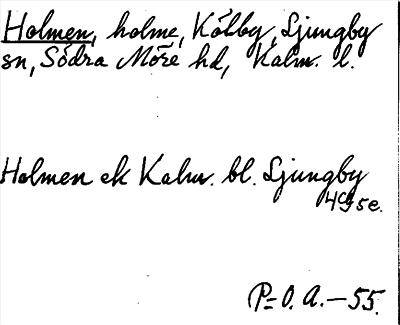 Holmen, holme, Kölby, Ljungby
sn, Södra Möre hd, Kalm. l.
Holmen ek Kalm. bl. Ljungby
4G5e.
P=O. A.—55.